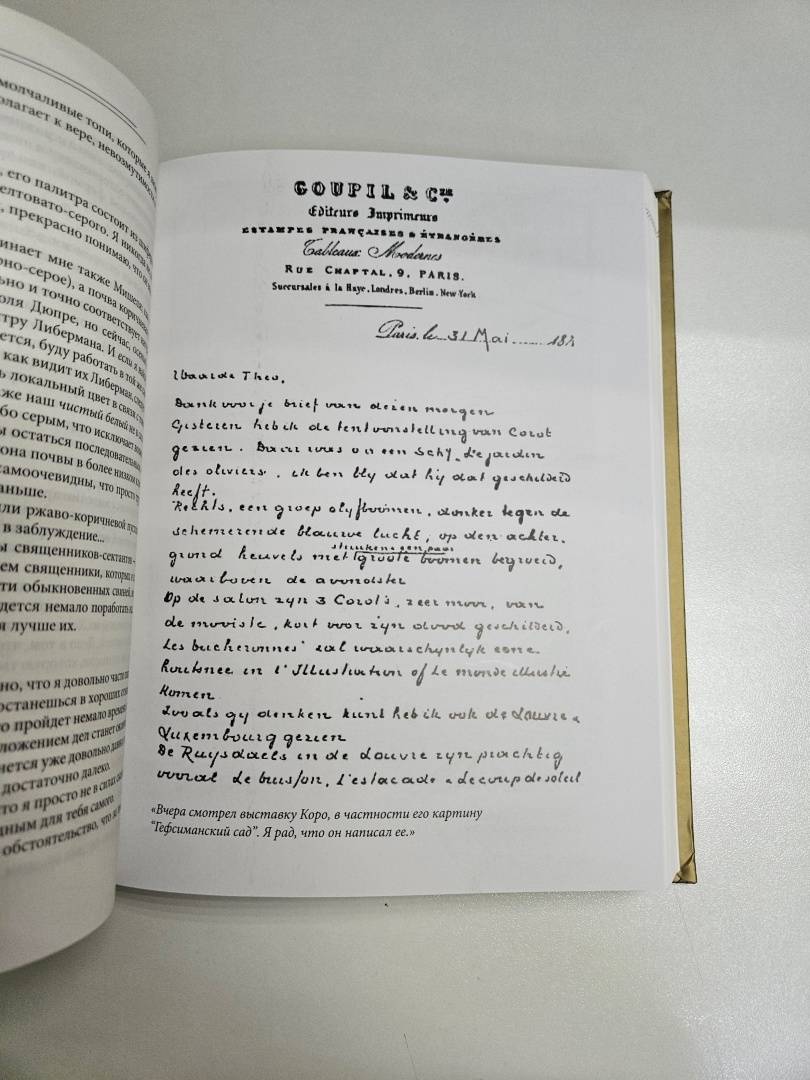 молчаливые топи, которые
лагает к вере, невозмутимо
его палитра состоит из
елтовато-серого. Я никогда
прекрасно понимаю, что
инает мне также Мишеля
рно-серое), а почва коричнев
ьно и точно соответствует
юля Дюпре, но сейчас,
тру Либермана. И если я
ется, буду работать в той же
как видит их Либерман,
ь локальный цвет в связи с
же наш чистый белый не
бо серым, что исключает
ы остаться последовательн
она почвы в более низком
самоочевидны, что просто
аньше.
ли ржаво-коричневой
в заблуждение...
ы священников-сектантов -
ем священники, которых
ти обыкновенных свиней,
дется немало поработать
я лучше их.
но, что я довольно часто
останешься в хороших
о пройдет немало време
ложением дел станет
нется уже довольно
достаточно далеко.
то я просто не в силах
дным для тебя самого.
обстоятельство, что
GOUPIL & Cie.
Editeurs Imprimeurs
ESTAMPES FRANÇAISES & ÉTRANGÈRES
Tableaux Modernes
RUE CHAPTAL, 9, PARIS.
Succursales à la Haye, Londres, Berlin, New York
Paris, le 31 Mai 187
Waarde Theo,
Dank voor je brief van dezen morgen
Gisteren heb ik de tentoonstelling van Corot
gezien. Daar was o a een schij, Le jardin
des oliviers. ik ben bly dat hij dat geschilderd
heeft.
Rechts, een groep olyfboomen, donker tegen de
schemerende blauwe lucht, op den achter.
grond heuvels met struiken & een paar groote boomen begroeid,
waarboven de avondster
Op de salon zyn 3 Corot's, zeer mooi, van
de mooiste, kort voor zyn dood geschilderd,
Les bucheronnes zal waarschynlyk eene
houtsnee in l'Illustration of Le monde illustré
komen
Zooals gy denken kunt heb ik ook de Louvre &
Luxembourg gezien
De Ruysdaels in de Louvre zyn prachtig
vooral Le buisson, L'estacade & le coup de soleil
«Вчера смотрел выставку Коро, в частности его картину
"Гефсиманский сад". Я рад, что он написал ее.»